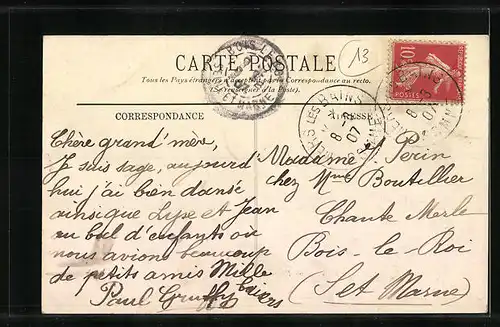 CARTE POSTALE
Tous les Pays étrangers n'acceptent pas la Correspondance au recto.
(Se renseigner à la Poste).
13
10
POSTES
BOIS-LE-ROI
ET MARNE
LES BAINS
8-3
07
CORRESPONDANCE
ADRESSE
Chère grand'mère,
Je suis sage, aujourd'
hui j'ai bien dansé
ainsi que Lyse et Jean
au bal d'enfants où
nous avions beaucoup
de petits amis Mille
Baisers
Paul
Madame J. Perin
chez Mme Boutellier
Chante Merle
Bois-le-Roi
(Set Marne)